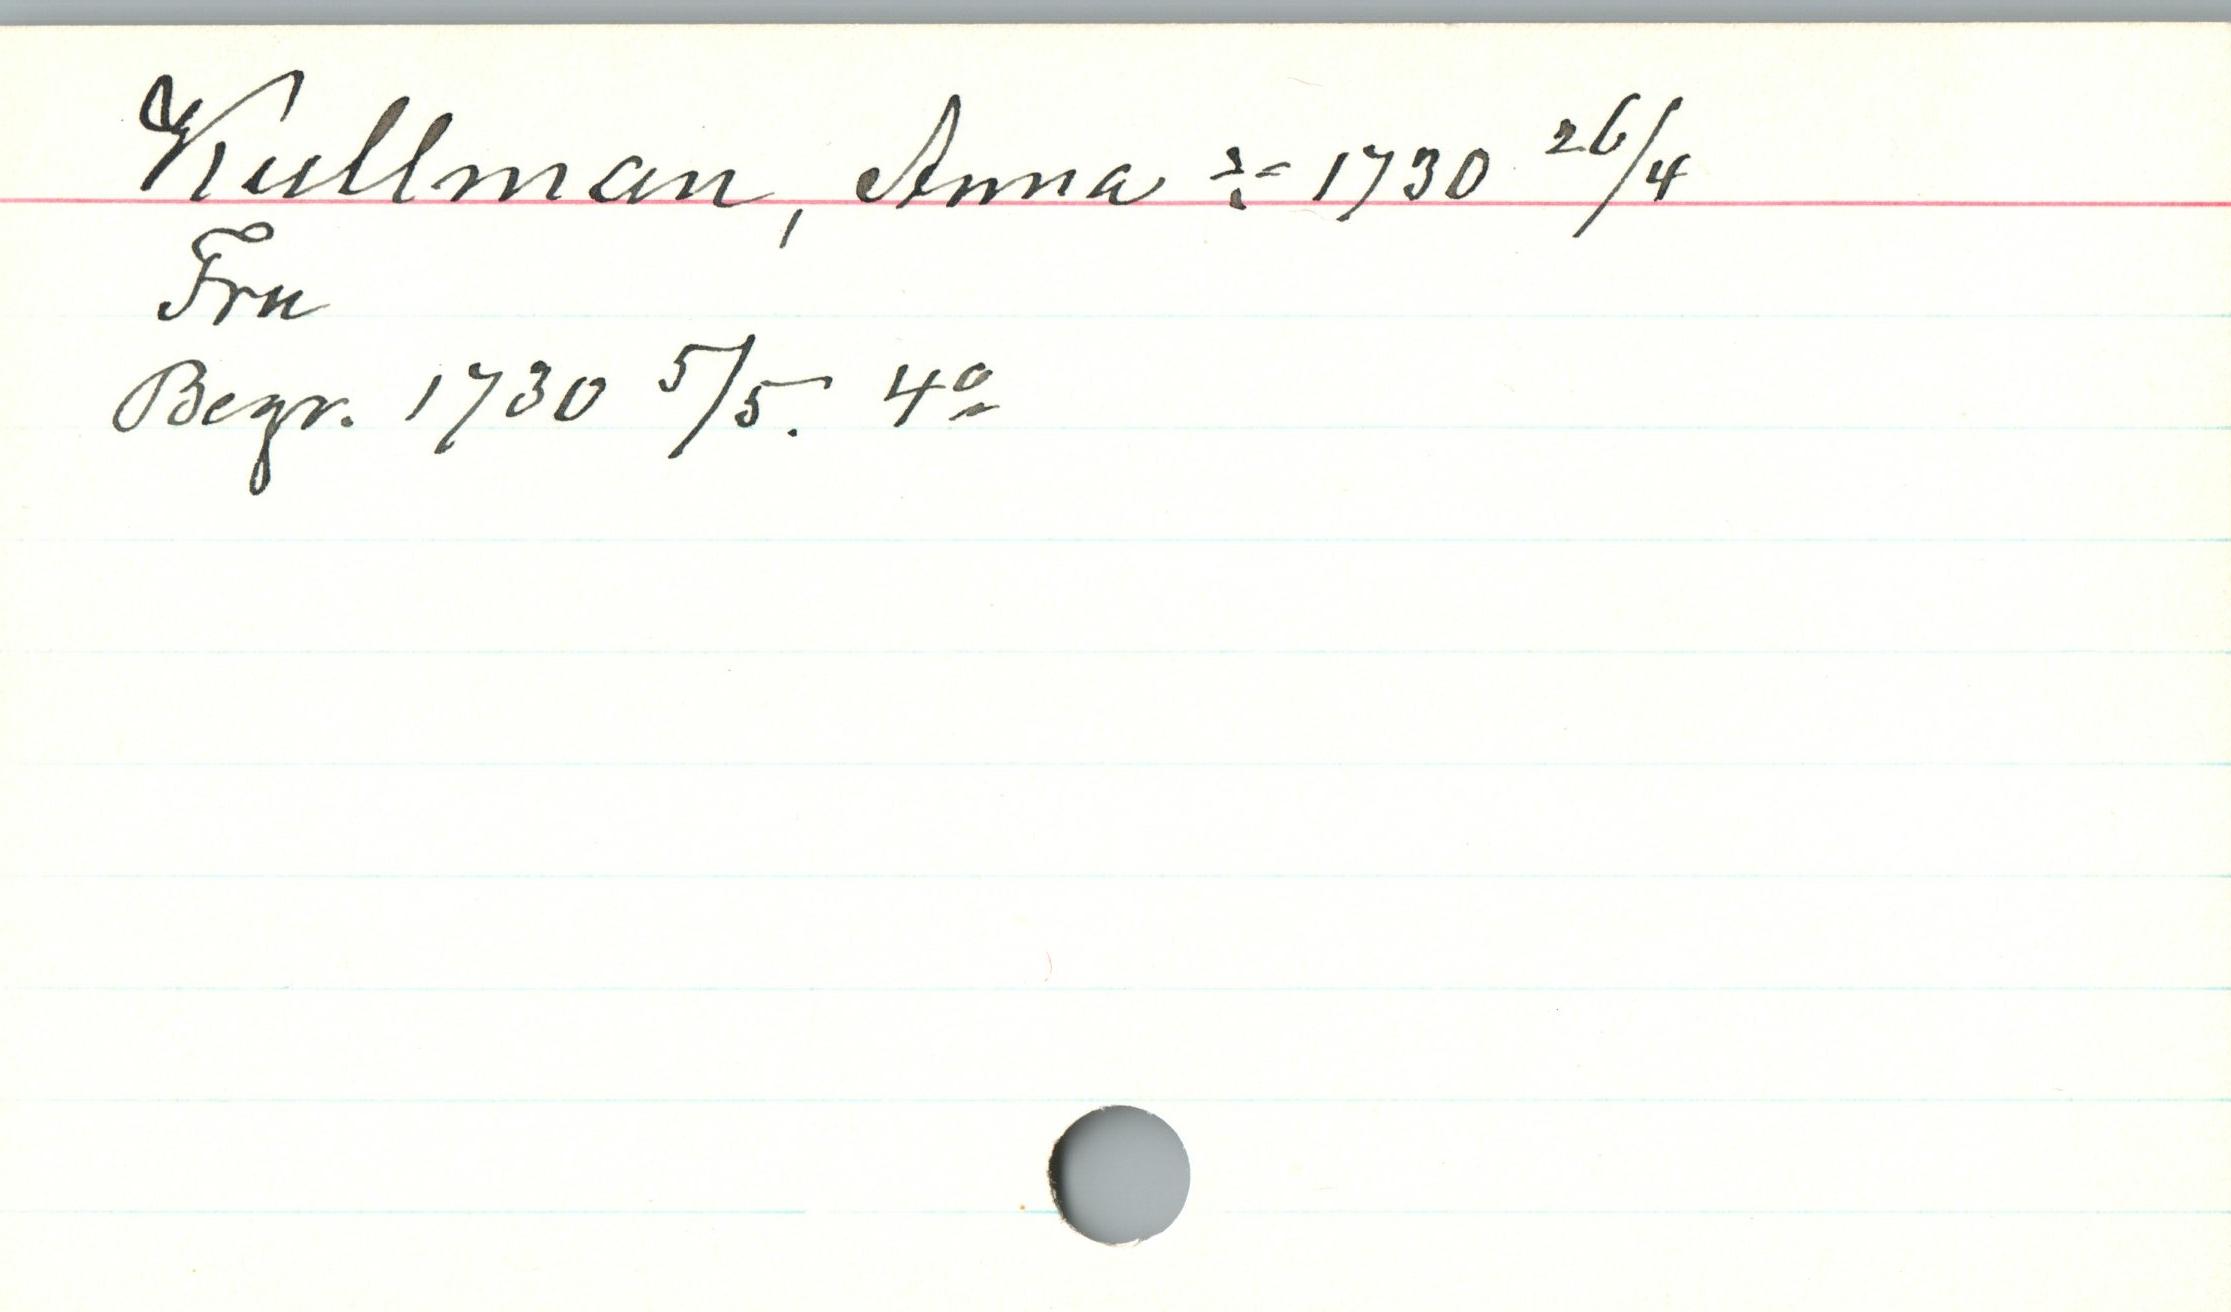 Kullman, Anna ?- 1730 26/4
Fru
Begr. 1730 5/5. 4a